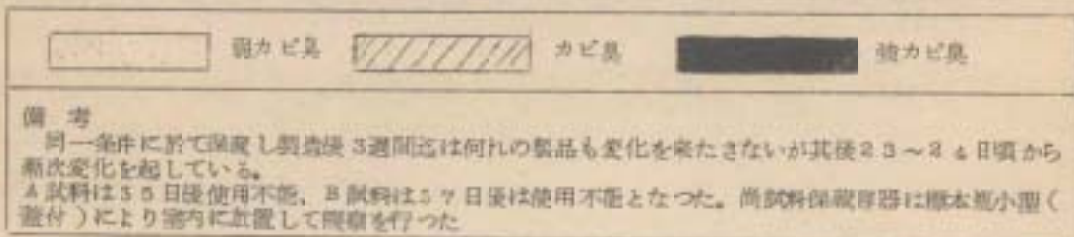 弱カビ臭 カビ臭 強カビ臭
備考
同一条件に於て し製造後3週間迄は何れの製品も変化を来たさないが其後23～24日頃から
漸次変化を起している。
A試料は35日後使用不能、B試料は37日後は使用不能となつた。尚試料保蔵容器は標本瓶小型（
蓋付）により室内に放置して観察を行つた